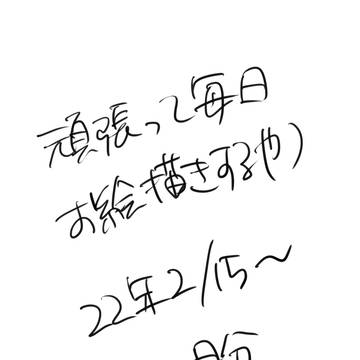 頑張って毎日
お絵描きするや)
22年2/15〜